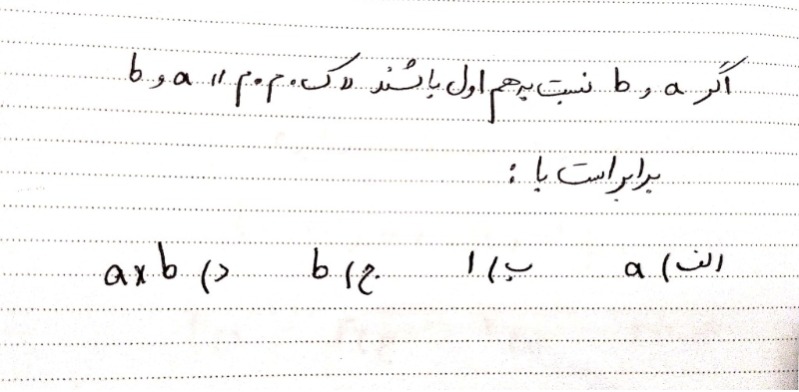 اگر a و b نسبت به هم اول باشند «ک.م.م» a و b
برابر است با :
الف) a ب) ۱ ج) b د) a×b